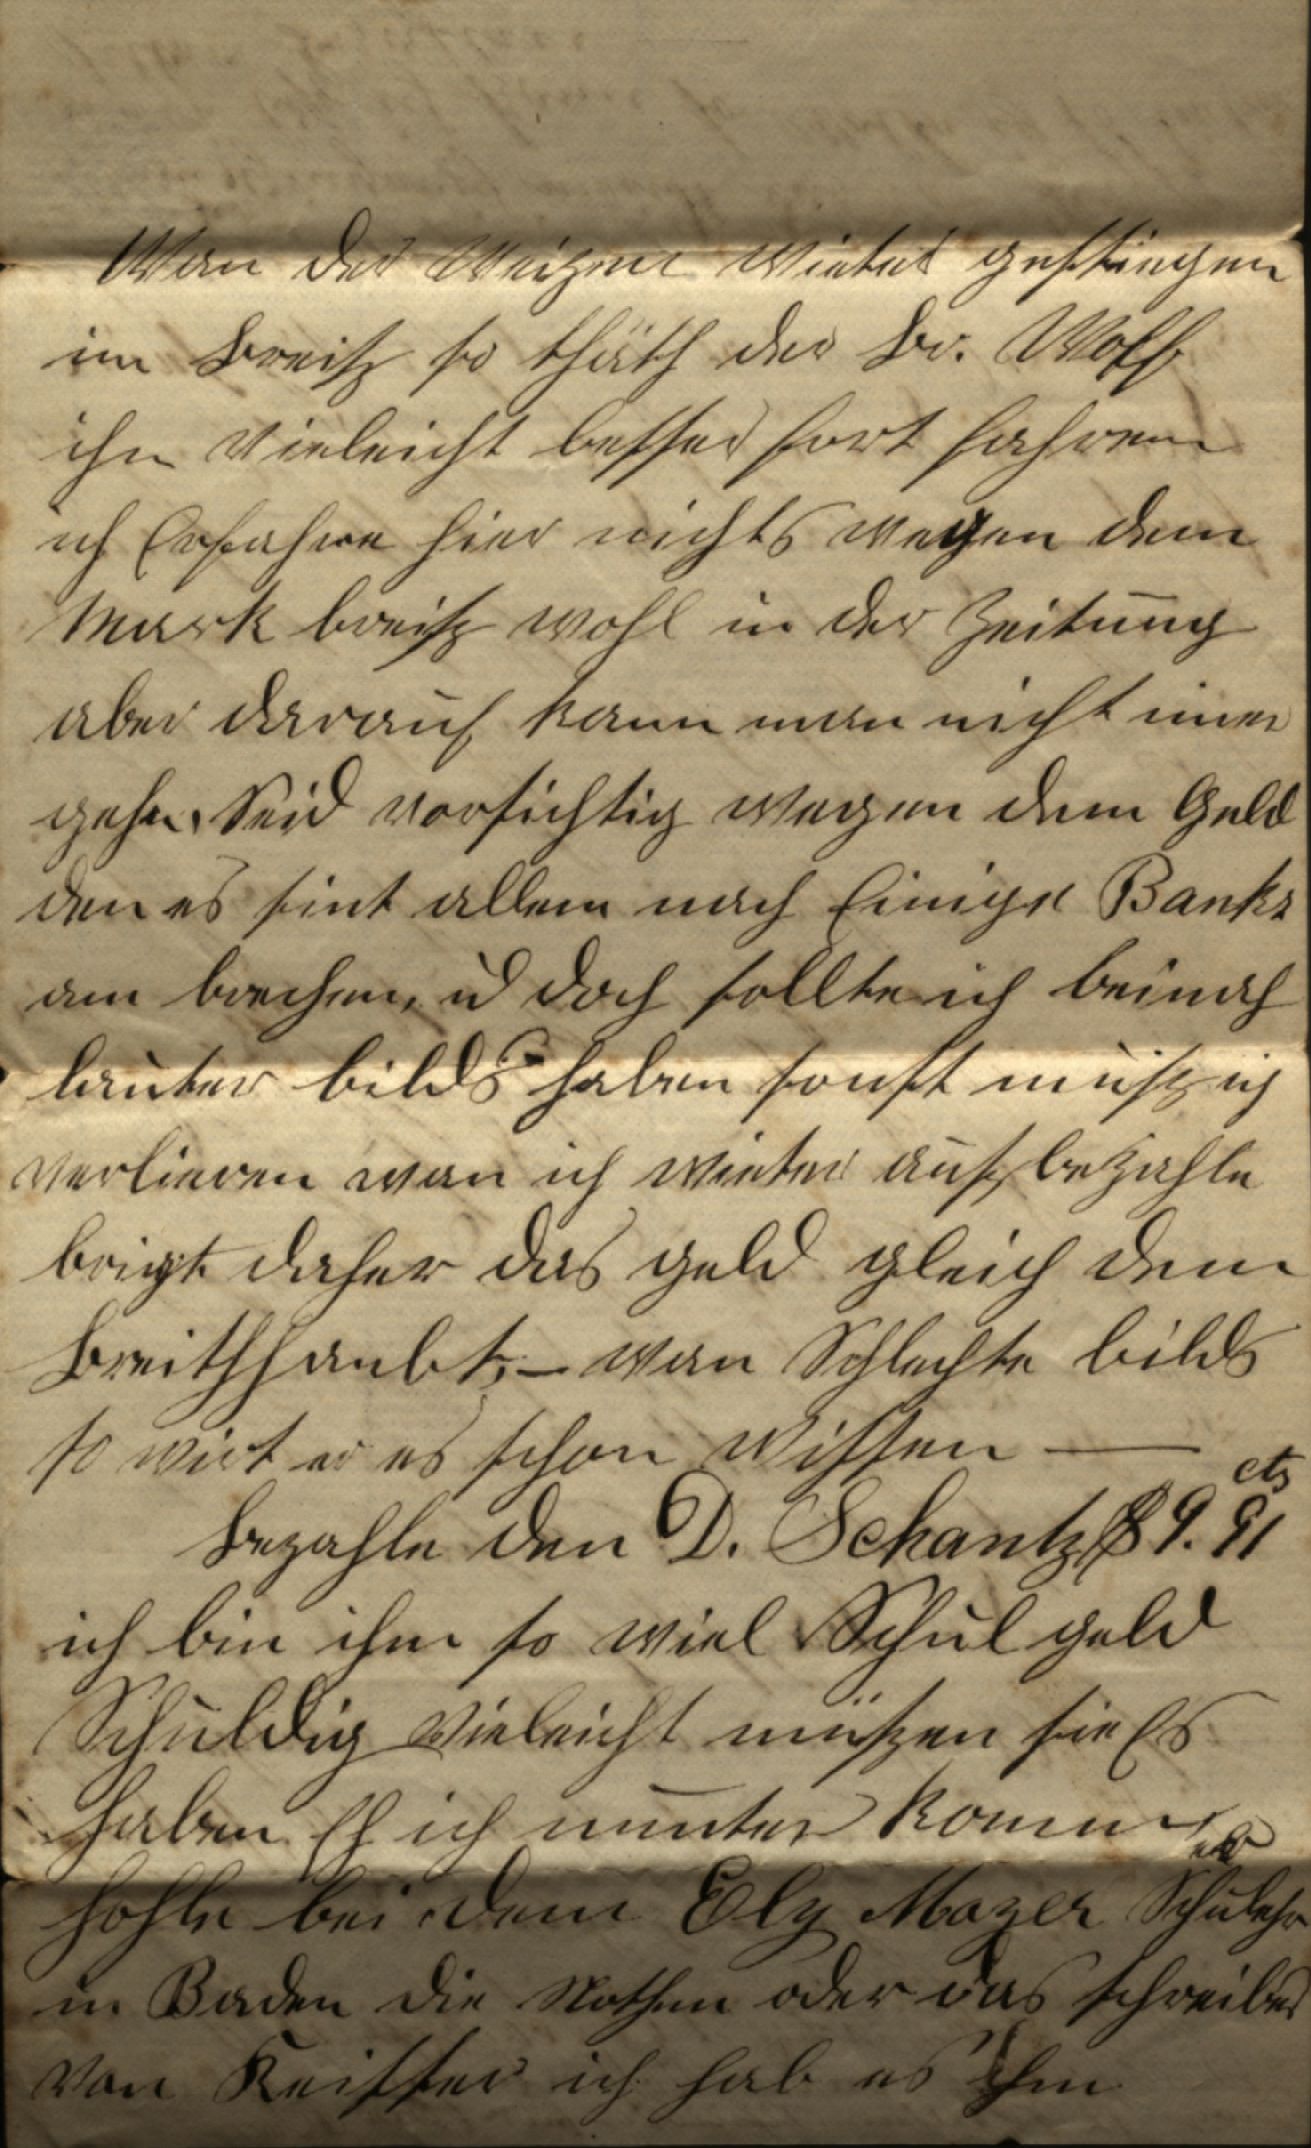 Wan der Weizen wieter gestiegen
im Breitz so thäth der Br. Wolf
ihn vieleicht besser fort fahren
ich Erfahre hier nichts wegen dem
Mark breitz wohl in der Zeitung
aber darauf kann man nicht imer
gehn. Seid vorsichtig wegen dem Geld
den es sint allem nach Einige Banks
am brechen, u doch sollte ich beinah
lauter bills haben sonst mußz ich
verlieren wan ich wieter aufbezahle
bringt daher das geld gleich dem
Breithhaubt, – wan Schlechte bills
so wirt er es schon wissen —
Bezahle den D. Schantz $9. 91 cts
ich bin ihm so viel Schulgeld
Schuldig vieleicht müßzen sie Es
haben Eh ich nunter komme
hohle bei dem Ely Mayer Schulehr
in Baden die Nothen oder das schreiben
von Keiffer ich hab es Ihm